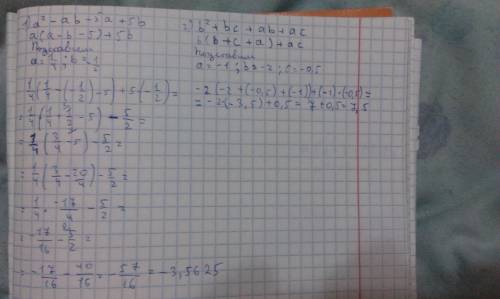 1) a² - ab - 5a + 5b
a(a - b - 5) + 5b
Подставим
a = 1/4 ; b = -1/2
1/4 (1/4 - (-1/2) - 5) + 5(-1/2) =
= 1/4 (1/4 + 1/2 - 5) - 5/2 =
= 1/4 (3/4 - 5) - 5/2 =
= 1/4 (3/4 - 20/4) - 5/2 =
= 1/4 · -17/4 - 5/2 =
= -17/16 - 5/2 =
= -17/16 - 40/16 = -57/16 = -3,5625
2) b² + bc + ab + ac
b(b + c + a) + ac
Подставим
a = -1 ; b = -2 ; c = -0,5
-2(-2 + (-0,5) + (-1)) + (-1)·(-0,5) =
= -2(-3,5) + 0,5 = 7 + 0,5 = 7,5